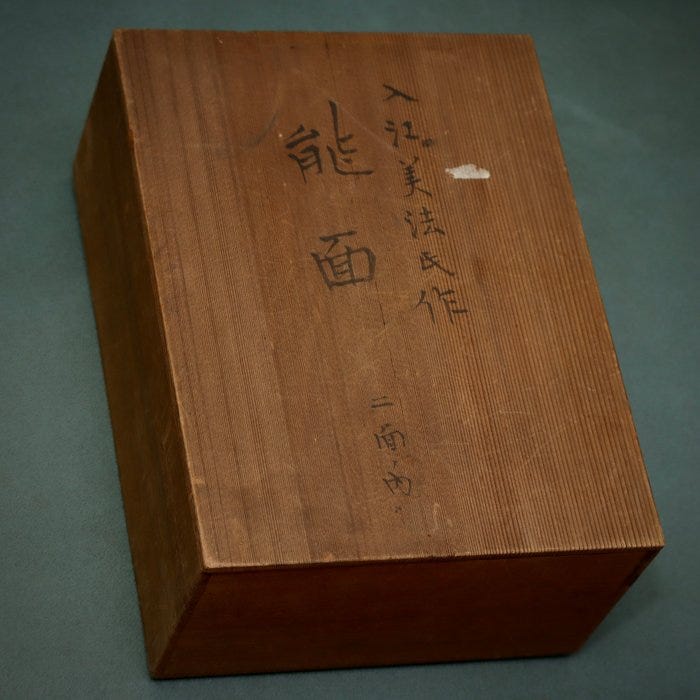 入江美法氏作
能面
二面ノ内